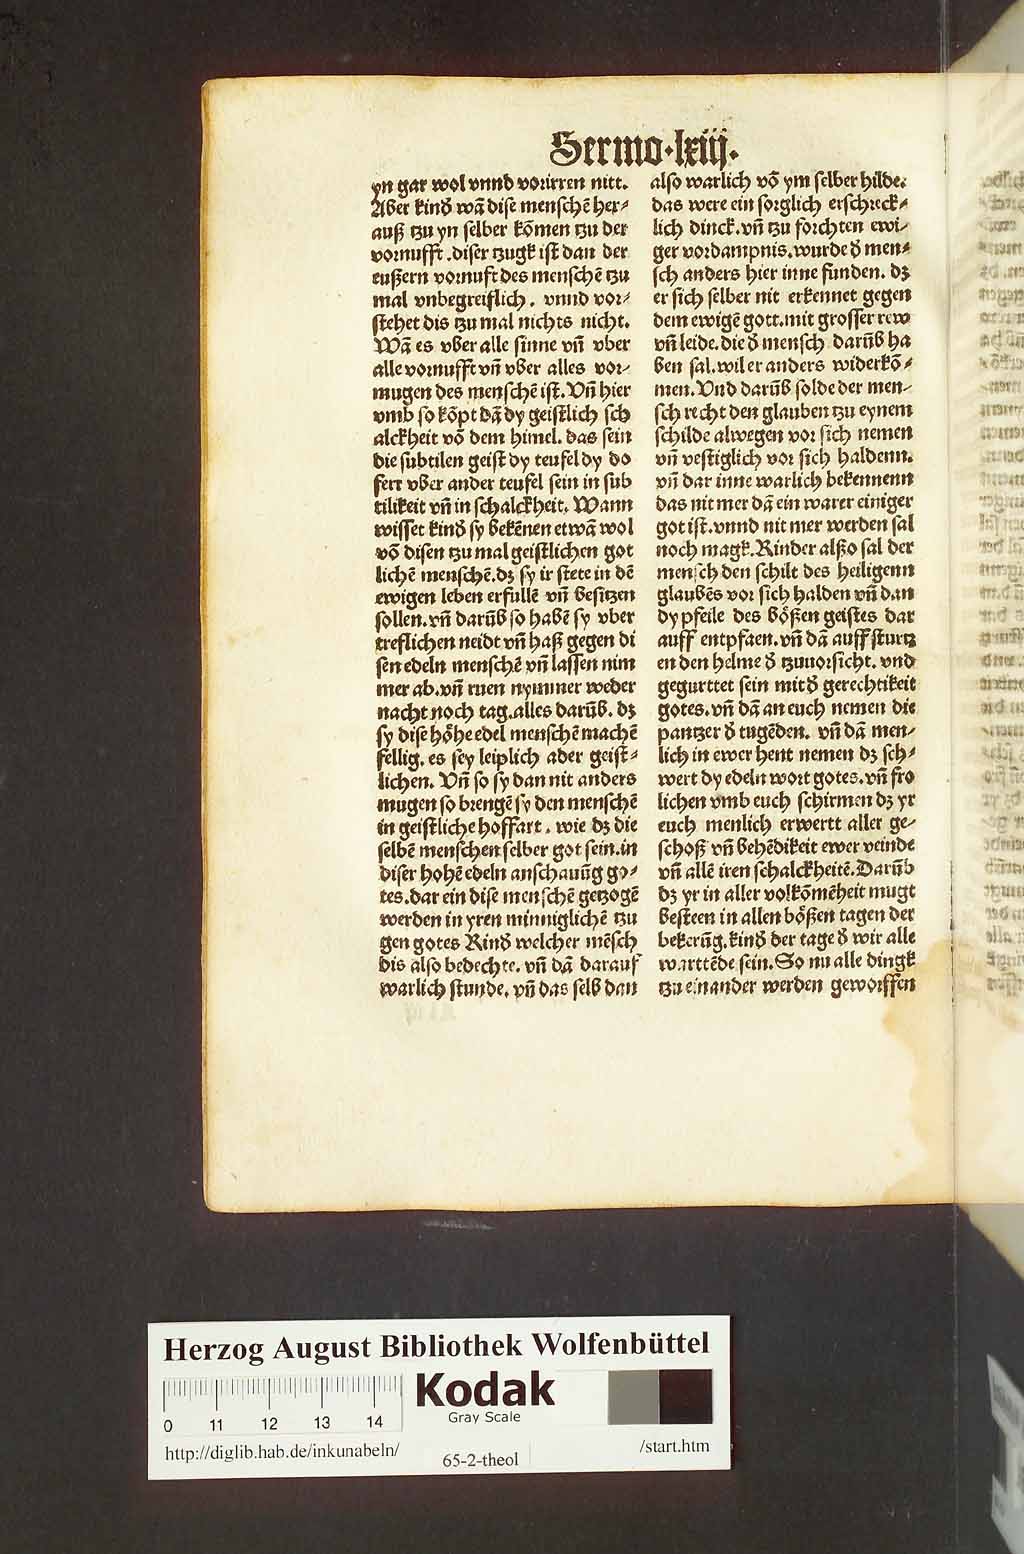 Sermo·lxiij.
yn gar wol vnnd vorirren nitt.
Aber kinď wā dise menschē her⸗
auß tzu yn selber kōmen tzu der
vornufft.diser tzugk ist dan der
eußern vornuft des menschē tzu
mal vnbegreiflich. vnnd vor⸗
stehet dis tzu mal nichts nicht.
Wā es vber alle sinne vn̄ vber
alle vornufft vn̄ vber alles vor⸗
mugen des menschē ist. Vn̄ hier
vmb so kōpt dā dy geistlich sch
alckheit vō dem himel. das sein
die subtilen geist dy teufel dy do
ferr vber ander teufel sein in sub
tilikeit vn̄ in schalckheit. Wann
wisset kinď sy bekēnen etwā wol
vō disen tzu mal geistlichen got
lichē menschē.dz sy ir stete in dē
ewigen leben erfullē vn̄ besitzen
sollen.vn̄ darūb so habē sy vber
treflichen neidt vn̄ haß gegen di
sen edeln menschē vn̄ lassen nim
mer ab.vn̄ ruen nymmer weder
nacht noch tag.alles darūb. dz
sy dise höhe edel menschē machē
fellig. es sey leiplich ader geist⸗
lichen. Vn̄ so sy dan nit anders
mugen so brengē sy den menschē
in geistliche hoffart. wie dz die
selbē menschen selber got sein.in
diser hohē edeln anschauūg go⸗
tes.dar ein dise menschē getzogē
werden in yren minniglichē tzu
gen gotes Kinď welcher mēsch
dis also bedechte. vn̄ dā darauf
warlich stunde. vn̄ das selb dan
also warlich vō ym selber hilde.
das were ein sorglich erschreck⸗
lich dinck.vn̄ tzu forchten ewi⸗
ger vordampnis.wurde ď men⸗
sch anders hier inne funden. dz
er sich selber nit erkennet gegen
dem ewigē gott.mit grosser rew
vn̄ leide.die ď mensch darūb ha
ben sal.wil er anders widerkō⸗
men. Vnd darūb solde der men⸗
sch recht den glauben tzu eynem
schilde alwegen vor sich nemen
vn̄ vestiglich vor sich haldenn.
vn̄ dar inne warlich bekennenn
das nit mer dā ein warer einiger
got ist.vnnd nit mer werden sal
noch magk.Kinder alßo sal der
mensch den schilt des heiligenn
glaubēs vor sich halden vn̄ dan
dy pfeile des bößen geistes dar
auff entpfaen.vn̄ dā auff sturtz
en den helme ď tzuuorsicht. vnd
gegurttet sein mit ď gerechtikeit
gotes.vn̄ dā an euch nemen die
pantzer ď tugēden. vn̄ dā men⸗
lich in ewer hent nemen dz sch⸗
wert dy edeln wort gotes.vn̄ fro
lichen vmb euch schirmen dz yr
euch menlich erwertt aller ge⸗
schoß vn̄ behēdikeit ewer veinde
vn̄ allē iren schalckheitē.Darūb
dz yr in aller volkōmēheit mugt
besteen in allen bößen tagen der
bekerūg.kinď der tage ď wir alle
warttēde sein.So nu alle dingk
tzu einander werden geworffen
Herzog August Bibliothek Wolfenbüttel
Kodak
Gray Scale
0 11 12 13 14
http://diglib.hab.de/inkunabeln/
65-2-theol
/start.htm